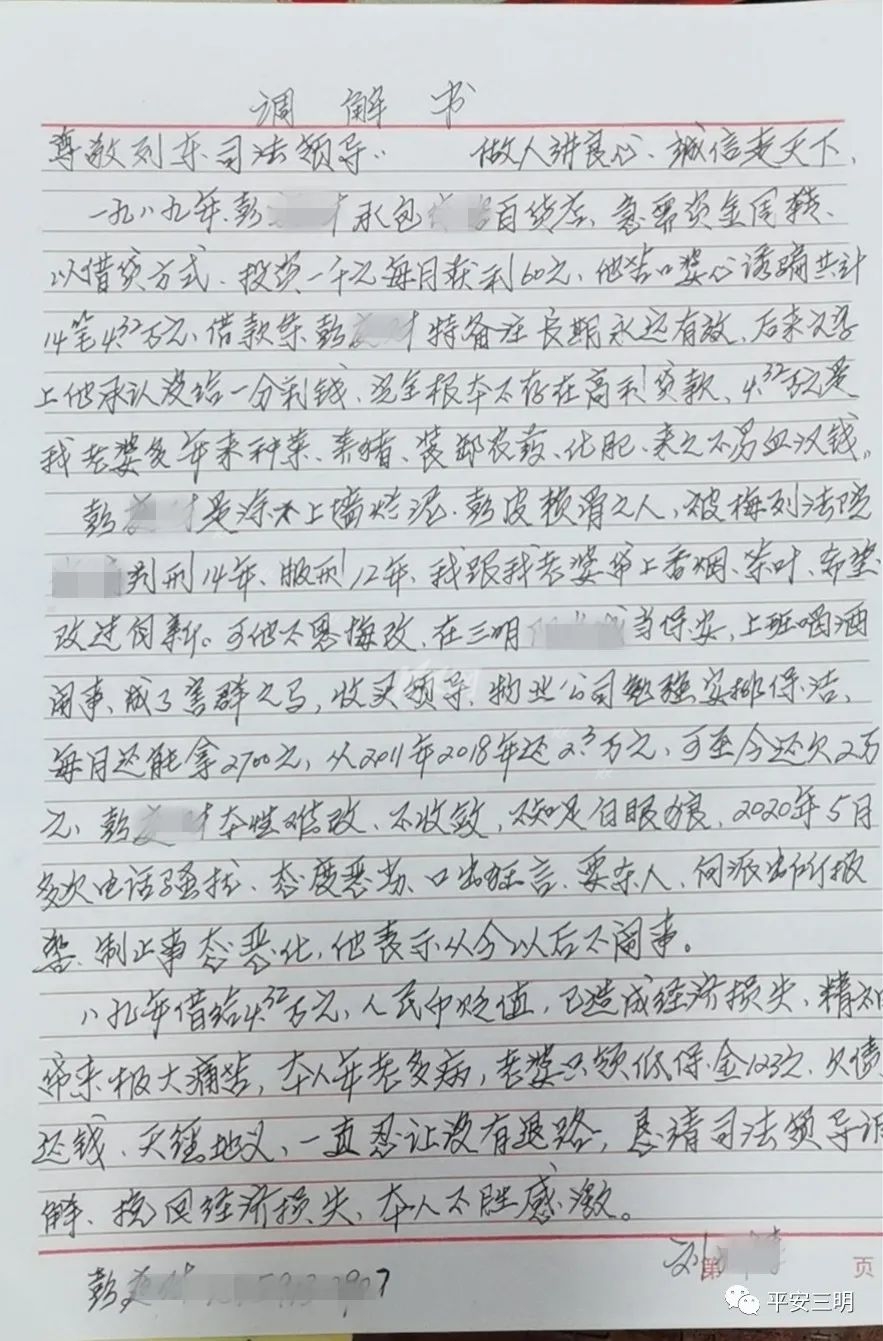 调解书
尊敬列东司法领导： 做人讲良心、诚信走天下、
一九八九年、彭 承包 百货店、急需资金周转、
以借贷方式、投资一千元每月获利60元、他苦口婆心诱骗共计
14笔4.32万元、借款条彭 特备注长期永远有效、后来文字
上他承认没给一分利钱、完全根本不存在高利贷款、4.32万元是
我老婆多年来种菜、养猪、装卸农药、化肥、来之不易血汗钱。
彭 是涂不上墙烂泥、彭皮赖滑之人，被梅列法院
判刑14年、服刑12年、我跟我老婆带上香烟、茶叶、希望
改过自新。可他不思悔改、在三明 当保安，上班喝酒
闹事、成了害群之马，收买领导、物业公司勉强安排保洁、
每月还能拿2700元，从2011年2018年还2.3万元、可至今还欠2万
元、彭 本性难改、不收敛，不知足白眼狼、2020年5月
多次电话骚扰、态度恶劣、口出狂言、要杀人、向派出所报
警、制止事态恶化，他表示从今以后不闹事。
八九年借给4.32万元，人民币贬值，已造成经济损失、精神
带来极大痛苦，本人年老多病，老婆只领低保金123元、欠债
还钱、天经地义、一直忍让没有退路，恳请司法领导调
解、挽回经济损失、本人不胜感激。
刘 第 页
彭
平安三明